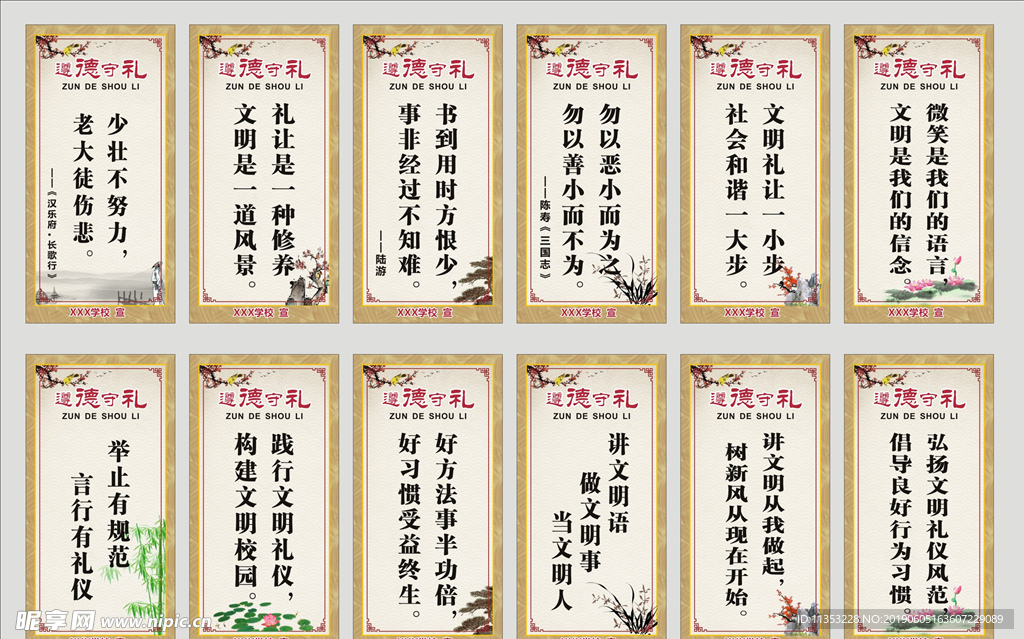 遵德守礼
ZUN DE SHOU LI
少壮不努力，
老大徒伤悲。
——《汉乐府·长歌行》
XXX学校 宣
遵德守礼
ZUN DE SHOU LI
礼让是一种修养，
文明是一道风景。
XXX学校 宣
遵德守礼
ZUN DE SHOU LI
书到用时方恨少，
事非经过不知难。
——陆游
XXX学校 宣
遵德守礼
ZUN DE SHOU LI
勿以恶小而为之，
勿以善小而不为。
——陈寿《三国志》
XXX学校 宣
遵德守礼
ZUN DE SHOU LI
文明礼让一小步，
社会和谐一大步。
XXX学校 宣
遵德守礼
ZUN DE SHOU LI
微笑是我们的语言，
文明是我们的信念。
XXX学校 宣
遵德守礼
ZUN DE SHOU LI
举止有规范
言行有礼仪
遵德守礼
ZUN DE SHOU LI
践行文明礼仪，
构建文明校园。
遵德守礼
ZUN DE SHOU LI
好方法事半功倍，
好习惯受益终生。
遵德守礼
ZUN DE SHOU LI
讲文明语
做文明事
当文明人
遵德守礼
ZUN DE SHOU LI
讲文明从我做起，
树新风从现在开始。
遵德守礼
ZUN DE SHOU LI
弘扬文明礼仪风范，
倡导良好行为习惯。
昵享网 www.nipic.cn
ID:11353228 NO:20190605163607229089